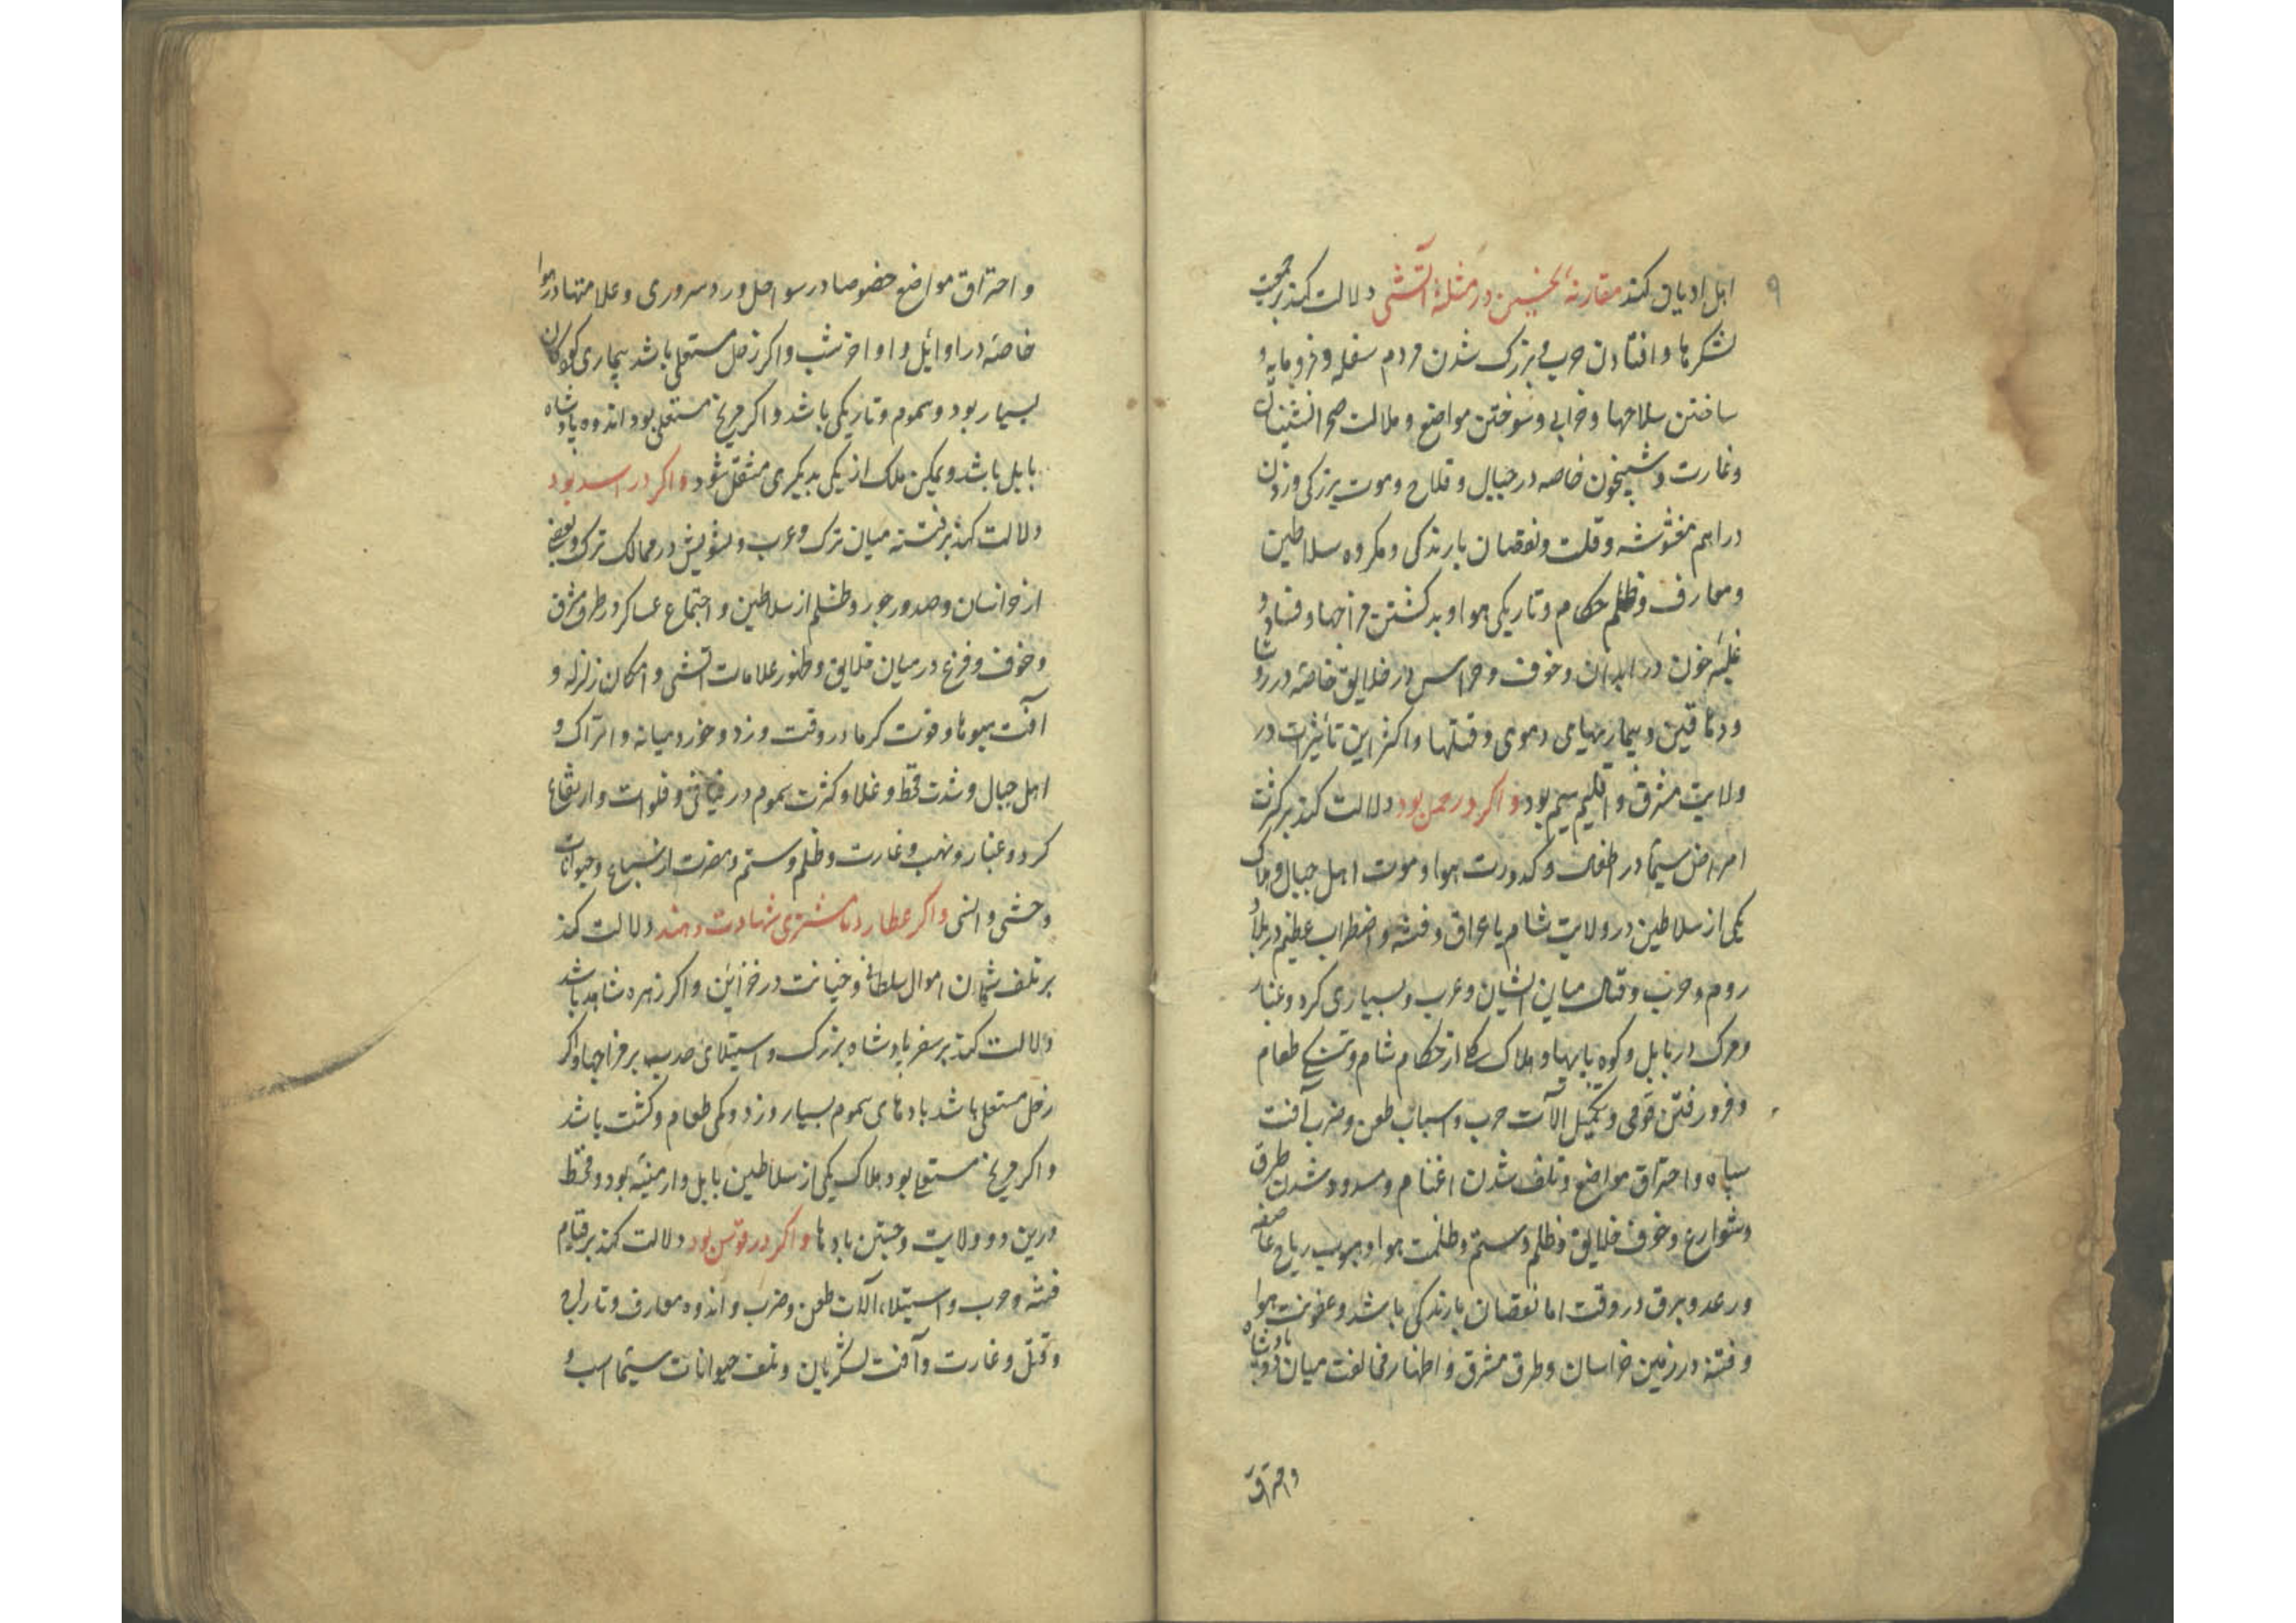 ۹
اهل ادیان کند مقارنهٔ نحسین در مثلثهٔ آتشی دلالت کند بر جمعیت
لشکرها و افتادن حرب و بزرک شدن مردم سفله و فرومایه و
ساختن سلاحها و خرابی و سوختن مواضع و ملالت صحرانشینان
و غارت و شبیخون خاصه در جبال و قلاع و موت بزرکی و زدن
دراهم مغشوشه و قلت و نقصان بارندکی و مکروه سلاطین
و معارف و ظلم حکام و تاریکی هوا و بد کشتن مزاجها و فساد و
غلبهٔ خون در ابدان و خوف و هراس در خلایق خاصه در روستا
و دهاقین و بیماریهای دموی و فتنها و اکثر این تأثیرات در
ولایت مشرق و اقلیم سیم بود و اکر در حمل بود دلالت کند بر کثرت
امراض سیما در اطفال و کدورت هوا و موت اهل جبال و هلاک
یکی از سلاطین در ولایت شام یا عراق و فتنه و اضطراب عظیم در بلاد
روم و حرب و قتال میان ایشان و عرب و بسیاری کرد و غبار
و مرک در بابل و کوه پایها و هلاک یکی از حکام شام و تنکی طعام
و فرو رفتن قومی و تکمیل آلات حرب و اسباب طعن و ضرب آفت
سپاه و احتراق مواضع و تلف شدن اغنام و مسدود شدن طرق
و شوارع و خوف خلایق و ظلم و ستم و ظلمت هوا و هبوب ریاح عاصفه
و رعد و برق در وقت اما نقصان بارندکی باشد و عفونت هوا
و فتنه در زمین خراسان و طرق مشرق و اظهار مخالفت میان دو پادشاه
و احتراق
و احتراق مواضع خصوصا در سواحل و رد سروری و علامتها در هوا
خاصه در اوایل و اواخر شب و اکر زحل مستعلی باشد بیماری کودکان
بسیار بود و سموم و تاریکی باشد و اکر مریخ مستعلی بود اندوه پادشاه
بابل باشد و یمکن ملک از یکی بدیکری منتقل شود و اکر در اسد بود
دلالت کند بر فتنه میان ترک و عرب و تشویش در ممالک ترک و بعضی
از خراسان و صدور جور و ظلم از سلاطین و اجتماع عساکر در طرف مشرق
و خوف و فزع در میان خلایق و ظهور علامات آتشی و امکان زلزله و
آفت میوها و قوت کرما در وقت و زد و خورد میانه و اتراک و
اهل جبال و شدت قحط و غلا و کثرت سموم در فیافی و فلوات و ارتفاع
کرد و غبار و نهب و غارت و ظلم و ستم و مضرت از سباع و حیوانات
وحشی و انسی و اکر عطارد با مشتری شهادت دهند دلالت کند
بر تلف شدن اموال سلطانی و خیانت در خزاین و اکر زهره شاهد باشد
دلالت کند بر سفر پادشاه بزرک و استیلای بر مزاجها و اکر
زحل مستعلی باشد بادهای سموم بسیار وزد و کمی طعام و کشت باشد
و اکر مریخ مستعلی بود هلاک یکی از سلاطین بابل و ارمنیه بود و قحط
درین دو ولایت و جستن بادها و اکر در قوس بود دلالت کند بر قیام
فتنه و حرب و استیلاء آلات طعن و ضرب و اندوه معارف و تاراج
و قتل و غارت و آفت لشکریان و تلف حیوانات سیما اسب و